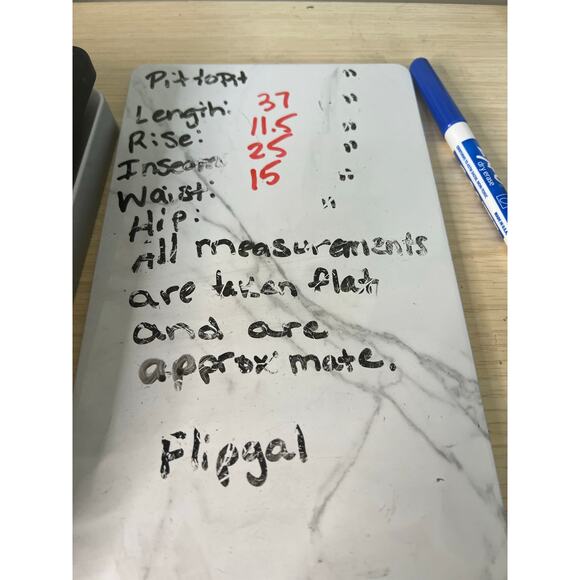 Pit to Pit "
Length: 37 "
Rise: 11.5 "
Inseam 25 "
Waist: 15 "
Hip: "
All measurements
are taken flat
and are
approx mate.
Flipgal
dry erase